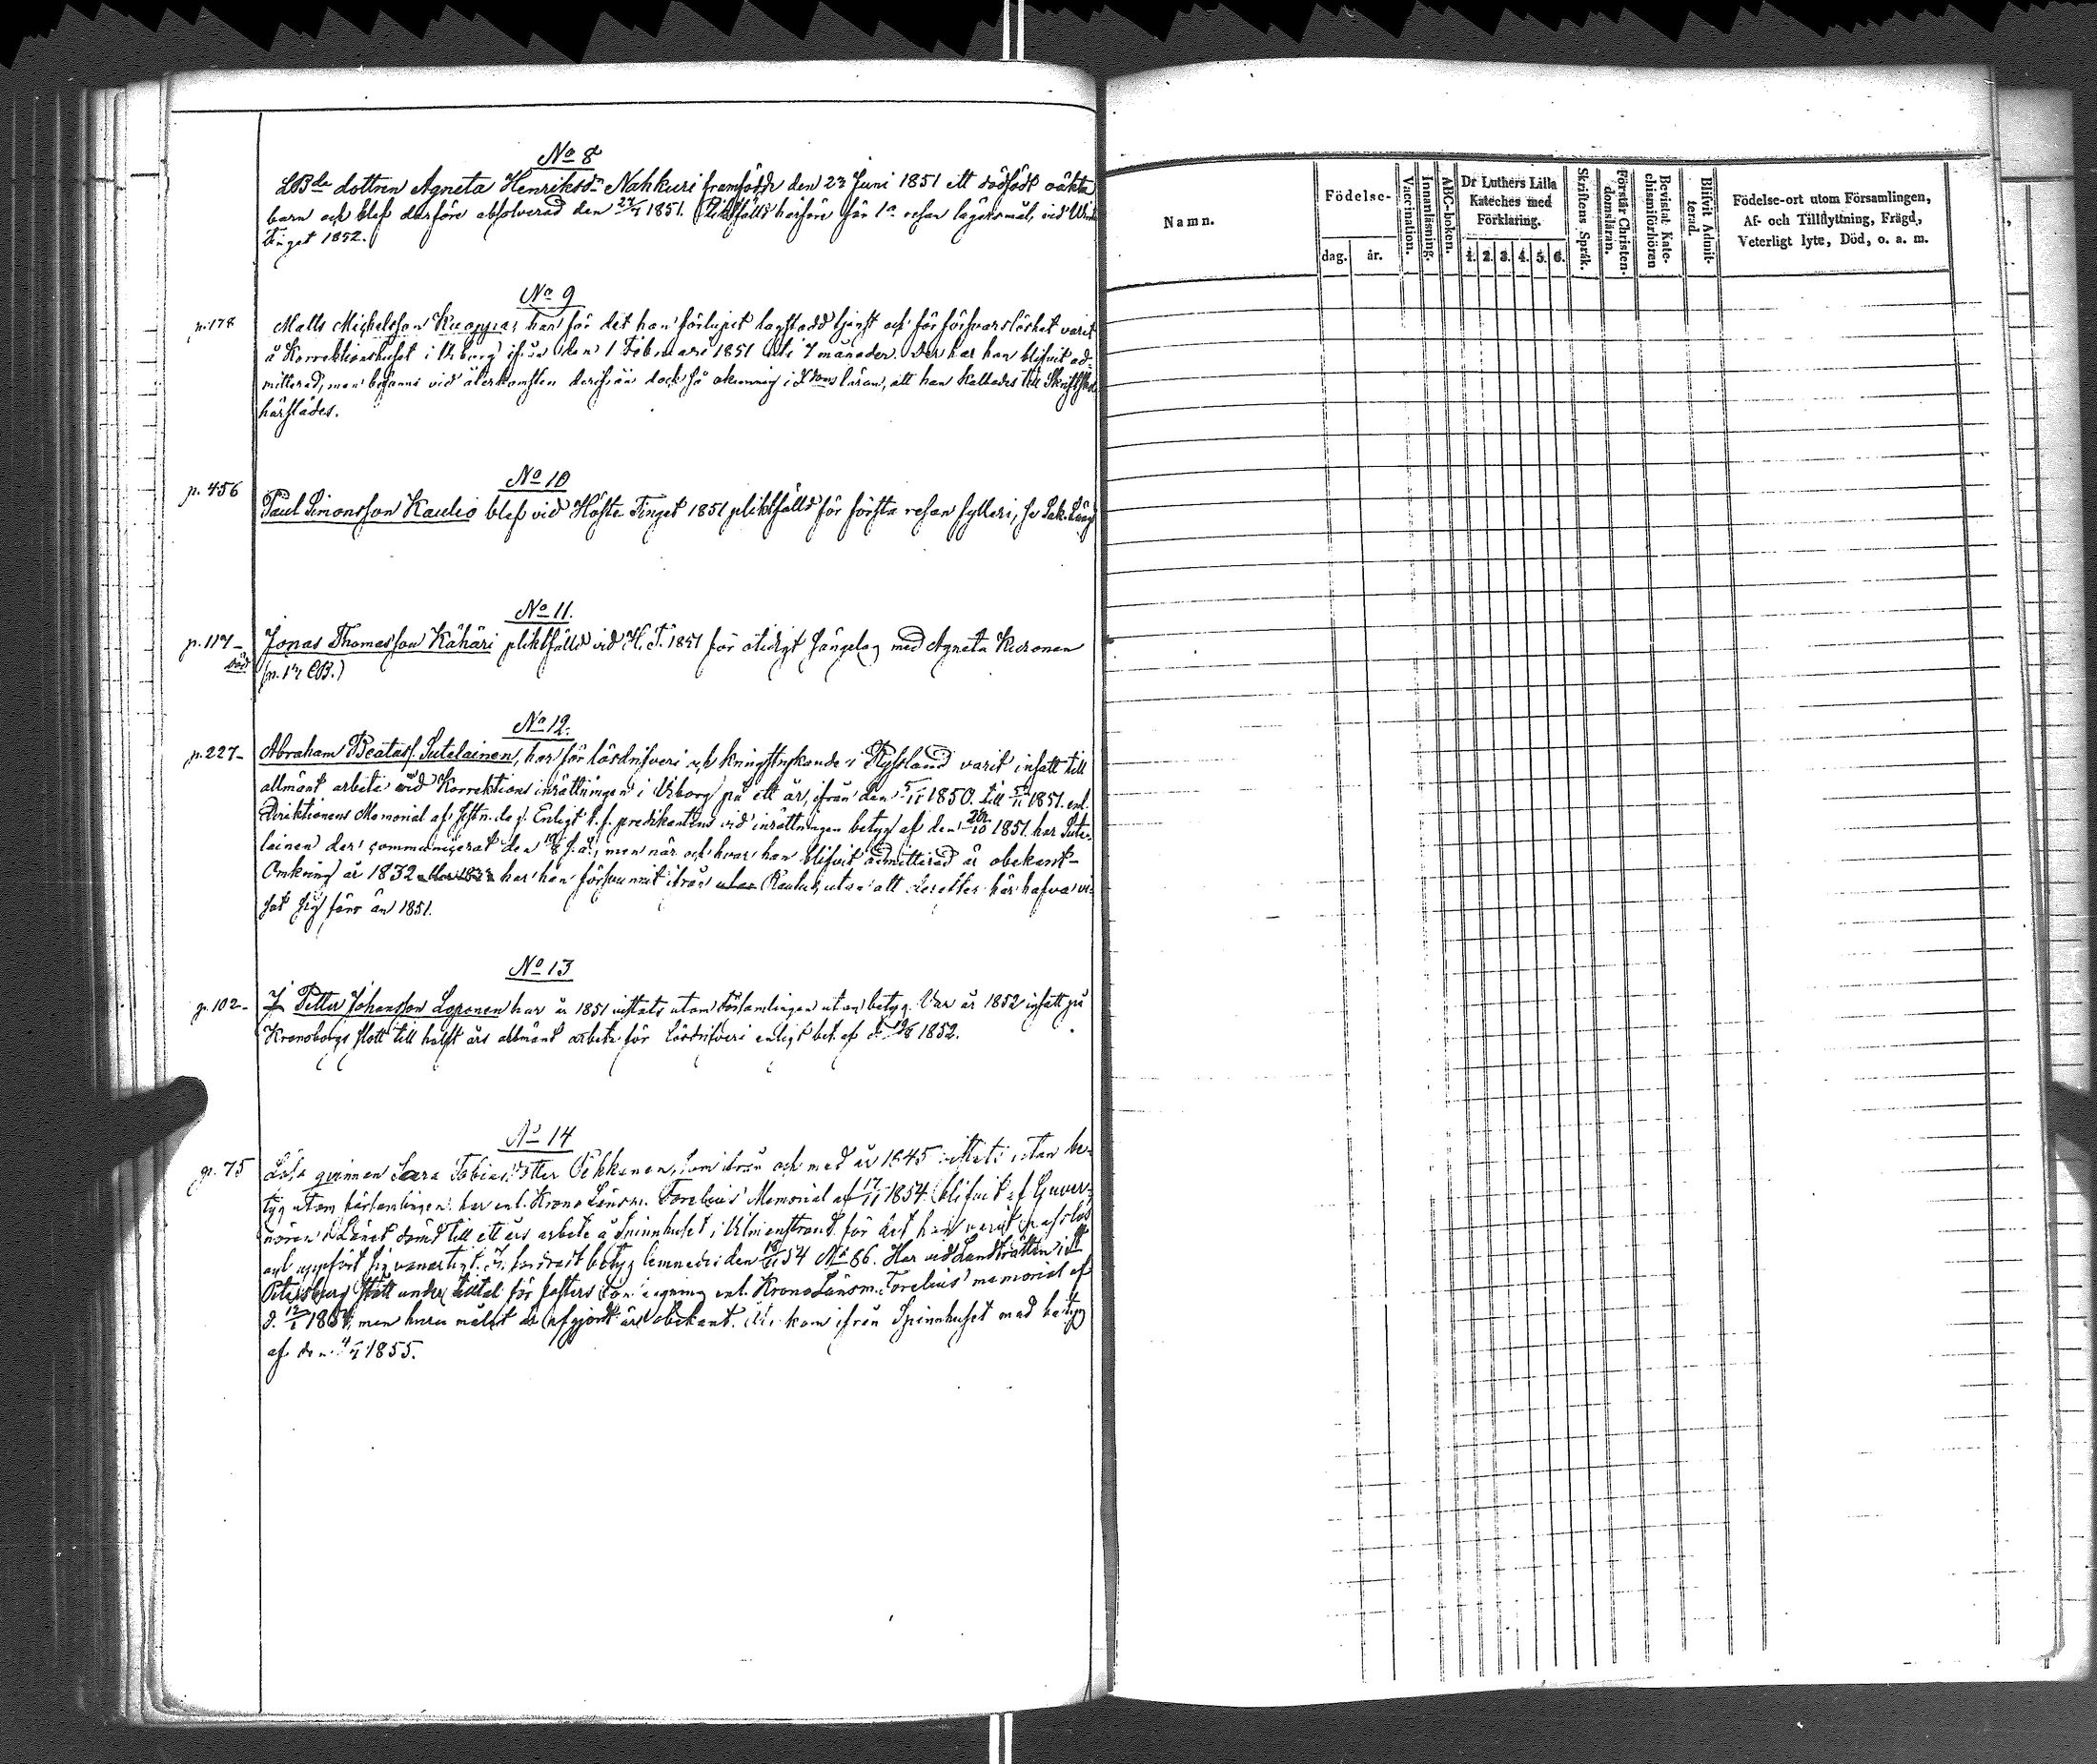 No 8
dottren Agneta Henriksdr Nahkuri framfödde den 23 Juni 1851 ett dödfödt oäkta
barn och blef derföre absolverad den 27/7 1851. Pliktfälld härföre för 1a resan lägersmål, vid Winter
Tinget 1852.
No 9
p. 178
Matts Michelsson Kuoppas har för det han förlupit lagstadd tjenst och för försvarslöshet varit
å Korrektionshuset i Wiborg ifrån den 1 Februari 1851 uti 7 månader. Der har han blifvit ad-
mitterad, men befanns vid återkomsten derifrån dock så okunnig i Xdoms läran, att han kallades till Skriftskola
härstädes.
No 10
p. 456
Paul Simonsson Kaulio blef vid Höste Tinget 1851 pliktfälld för första resan fylleri, se Sak. Längd
No 11.
p. 117-
död
Jonas Thomasson Kähäri pliktfälld vid H. T. 1851 för otidigt sängelag med Agneta Kuronen
(p. 17 CB.)
No 12.
p. 227-
Abraham Beatas. Sutelainen, har för lösdrifveri och kringstrykande i Ryssland varit insatt till
allmänt arbete vid Korrektions inrättningen i Wiborg på ett år, ifrån den 5/11 1850. till 5/11 1851. enl.
Direktionens Memorial af sistn. dag. Enligt t. f. predikantens vid inrättningen betyg af den 1851. har Sute-
lainen der communicerat den s. å., men när och hvar han blifvit admitterad är obekant-
Omkring år 1832 har han försvunnit ifrån Kaulio, utan att derefter här hafva vi-
sat sig förr än 1851.
No 13
p. 102-
Petter Johansson Loponen har år 1851 vistats utom Församlingen utan betyg. Var år 1852 insatt på
Kronoborgs slott till halft års allmänt arbete för lösdrifveri enligt bet. af d. 1852.
No 14
p. 75
Lösa qvinnan Sara Tobiasdotter Pekkanen, som ifrån och med år 1845 vistats utan be-
tyg utom församlingen har enl. Krono Länsm. Forelius' Memorial af 17/11 1854 blifvit af Guver-
nören i Länet dömd till ett års arbete å Spinnhuset i Wilmanstrand för det hon varit passlös
och uppfört sig vanartigt. betyg lemnades den 54 No 86. Har vid Landträtten i St
Petersburg stått under tilltal för fosters enl. Krono Länsm. Forelius' memorial af
d. men huru målet är afgjordt är obekant. kom ifrån Spinnhuset med betyg
af den 1855.
Namn.
Födelse-
dag.
år.
Vaccination.
Innanläsning.
ABC-boken.
Dr Luthers Lilla
Kateches med
Förklaring.
1. 2. 3. 4. 5. 6.
Skriftens Språk.
Förstår Christen-
domsläran.
Bevistat Kate-
chismiförhören
Blifvit Admit-
terad.
Födelse-ort utom Församlingen,
Af- och Tillflyttning, Frägd,
Veterligt lyte, Död, o. a. m.